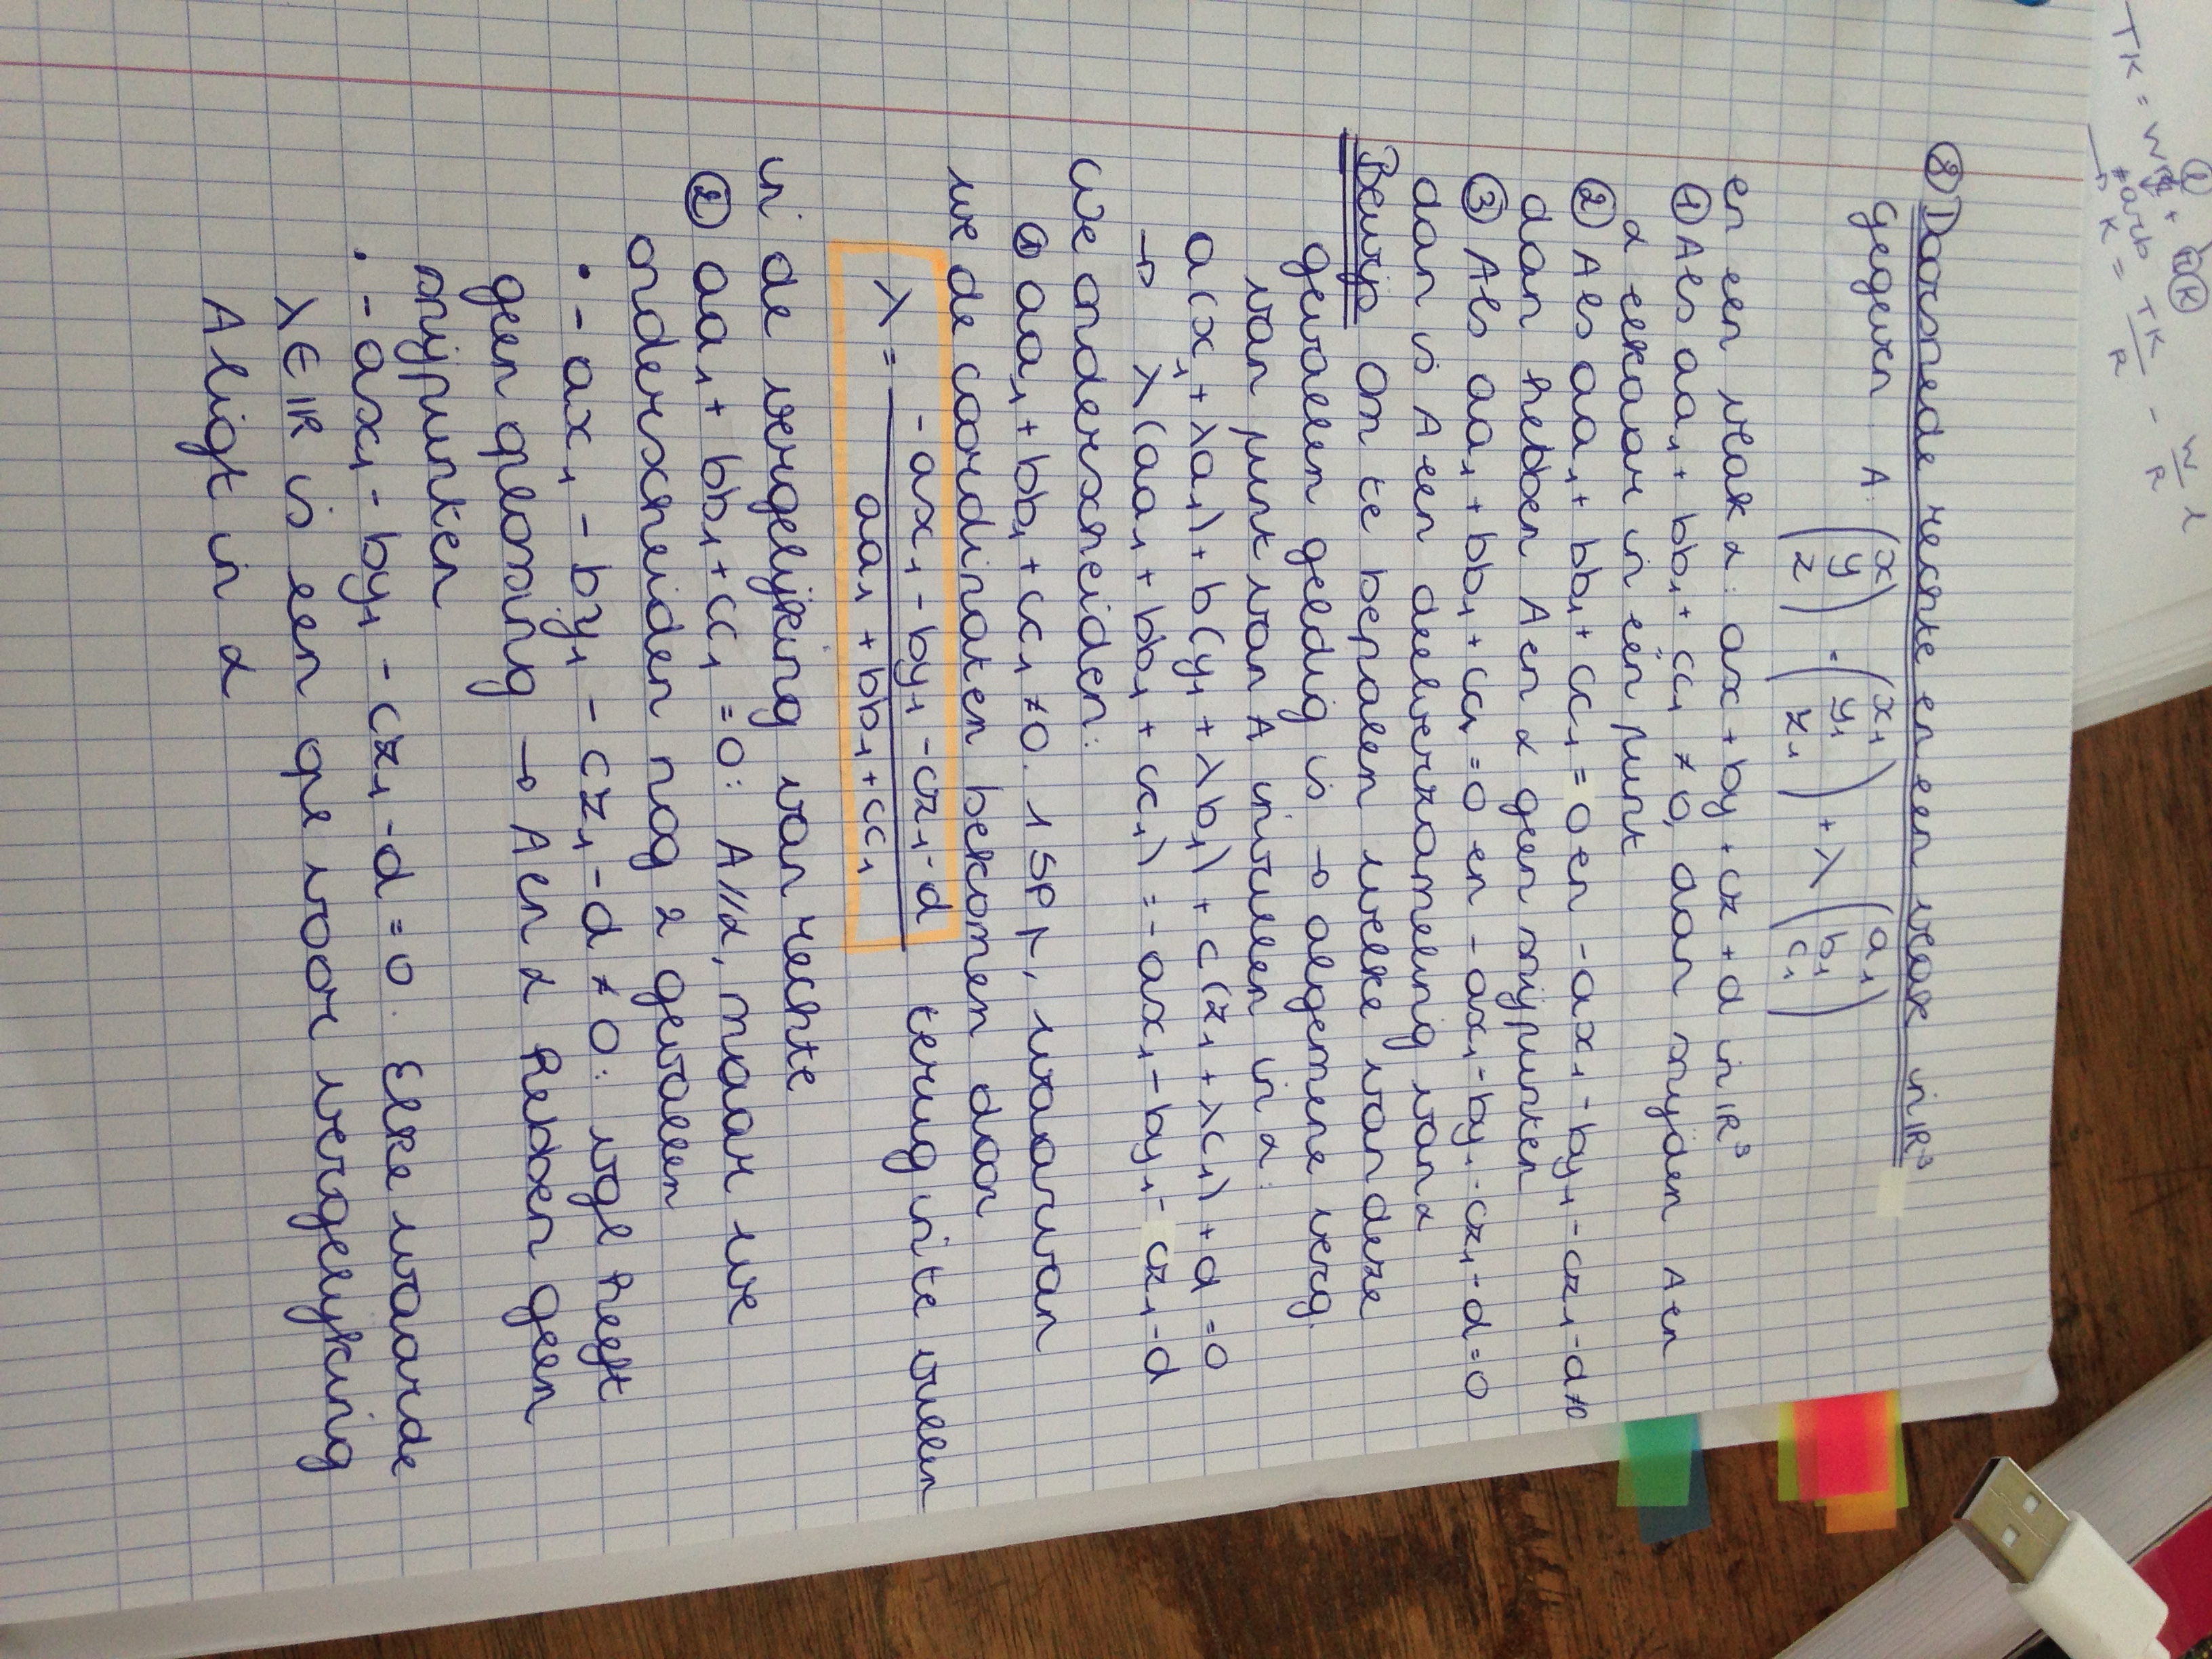 ⑧ Doorsnede rechte en een vlak in ℝ³
Gegeven A: (x y z) = (x₁ y₁ z₁) + λ (a₁ b₁ c₁)
en een vlak α: ax + by + cz + d in ℝ³
① Als aa₁ + bb₁ + cc₁ ≠ 0, dan snijden A en
α elkaar in één punt
② Als aa₁ + bb₁ + cc₁ = 0 en -ax₁ - by₁ - cz₁ - d ≠ 0
dan hebben A en α geen snijpunten
③ Als aa₁ + bb₁ + cc₁ = 0 en -ax₁ - by₁ - cz₁ - d = 0
dan is A een deelverzameling van α
Bewijs Om te bepalen welke van deze
gevallen geldig is → algemene verg.
van punt van A invullen in α:
a(x₁ + λa₁) + b(y₁ + λb₁) + c(z₁ + λc₁) + d = 0
→ λ(aa₁ + bb₁ + cc₁) = -ax₁ - by₁ - cz₁ - d
We onderscheiden:
① aa₁ + bb₁ + cc₁ ≠ 0. 1 SP, waarvan
we de coördinaten bekomen door
λ = (-ax₁ - by₁ - cz₁ - d) / (aa₁ + bb₁ + cc₁) terug in te vullen
in de vergelijking van rechte
② aa₁ + bb₁ + cc₁ = 0: A // α, maar we
onderscheiden nog 2 gevallen
• -ax₁ - by₁ - cz₁ - d ≠ 0: vgl heeft
geen oplossing → A en α hebben geen
snijpunten
• -ax₁ - by₁ - cz₁ - d = 0. Elke waarde
λ ∈ ℝ is een opl voor vergelijking
A ligt in α